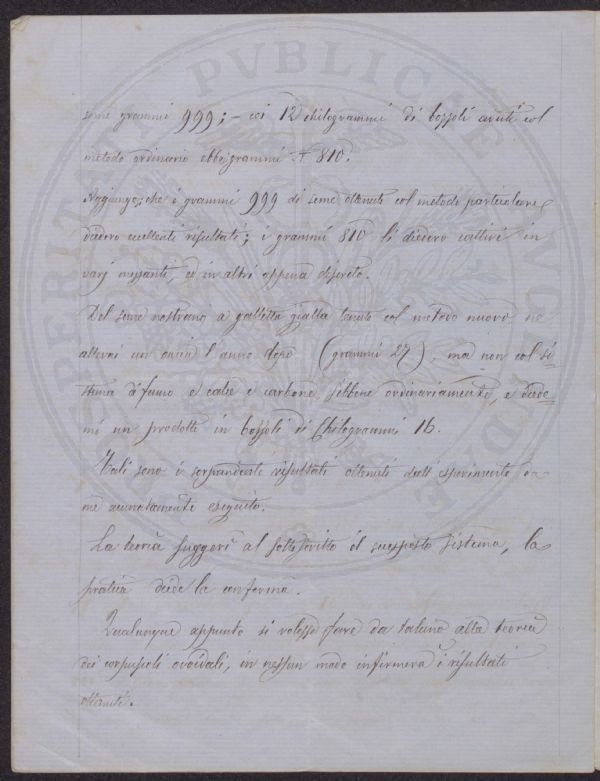 seme grammi 999; – coi 12 chilogrammi di bozzoli avuti col
metodo ordinario ebbi grammi N 810.
Aggiungo, che i grammi 999 di seme ottenuti col metodo particolare,
diedero eccellenti risultati; i grammi 810 li diedero cattivi in
varj, ed in altri appena discreto.
Del seme nostrano a galletta gialla tenuto col metodo nuovo ne
allevai un oncia l'anno dopo (grammi 27), ma non col si-
stema di fumo e calce e carbone, sebbene ordinariamente, e diede-
mi un prodotto in bozzoli di Chilogrammi 16.
Tali sono i sorprendenti risultati ottenuti dall'esperimento da
me accuratamente eseguito.
La teoria suggerì al sottoscritto il suesposto sistema, la
pratica diede la conferma.
Qualunque appunto si volesse fare da taluno alla teoria
dei corpuscoli ovoidali, in nessun modo infirmerà i risultati
ottenuti.
PVBLICAE